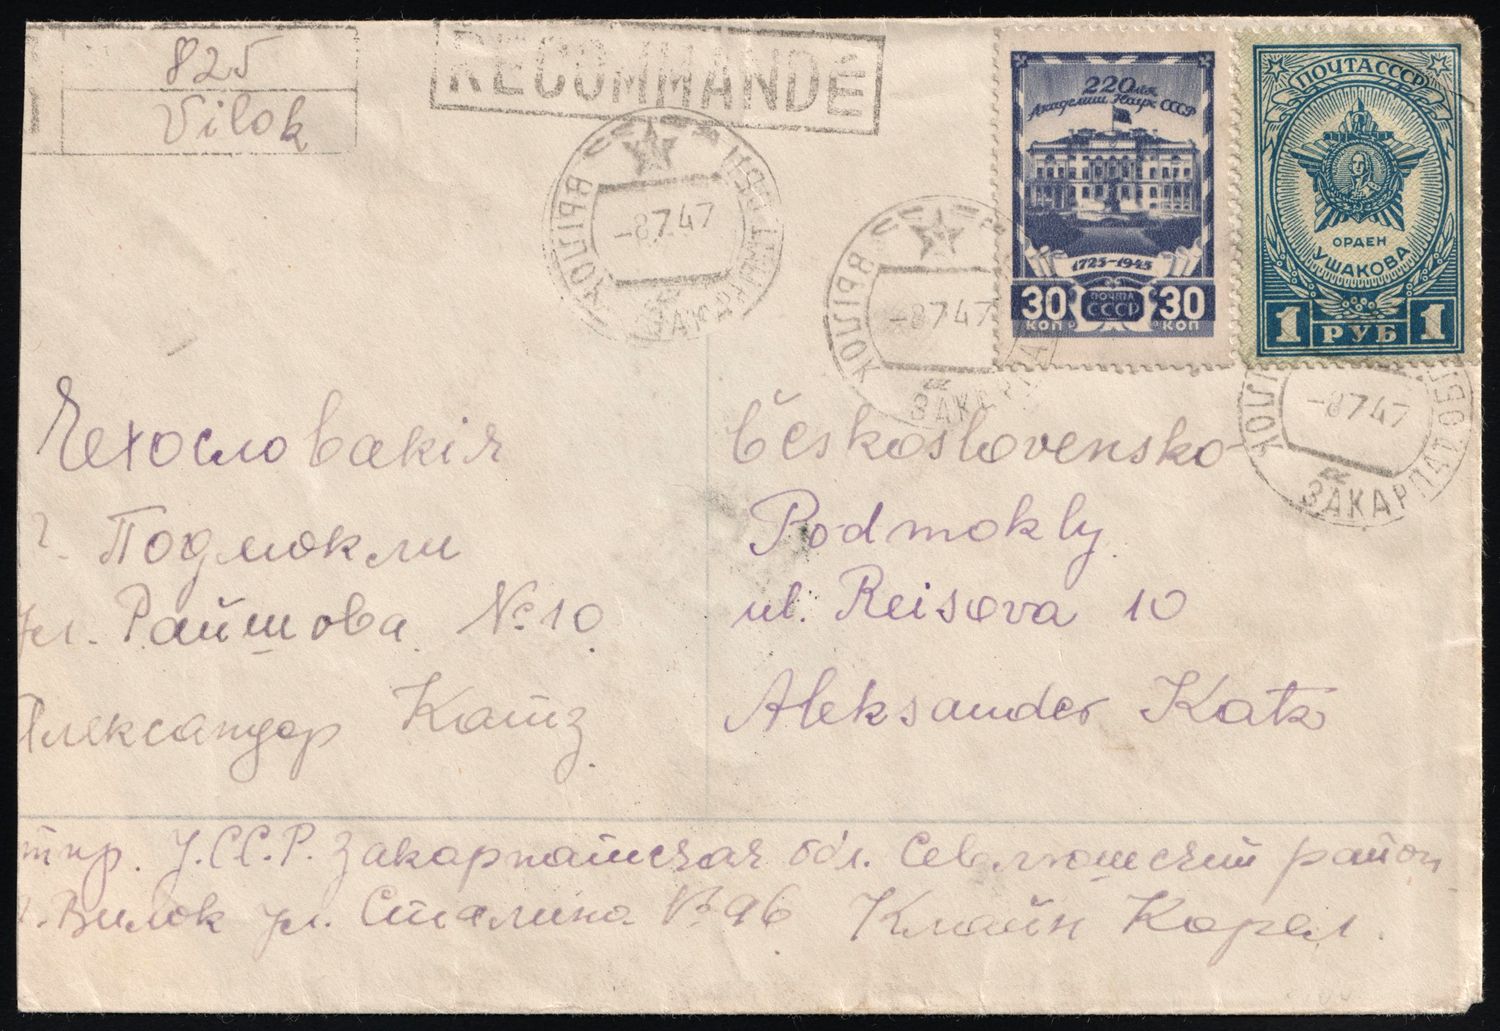 825
Vilok
RECOMMANDÉ
220 лет
Академии Наук СССР
1725-1945
30 ПОЧТА СССР 30
КОП КОП
ПОЧТА СССР
ОРДЕН
УШАКОВА
1 РУБ 1
-8.7.47
-8 7 47
ЗАКАРПА
-8 7 47
ЗАКАРПАТ ОБЛ
Чехословакія
г. Подмокли
ул. Райшова №10
Александр Катз
Československo
Podmokly
ul. Reisova 10
Aleksander Katz
У.С.С.Р. Закарпатская обл. Севлюшский район
г. Вилок ул. Сталина №96 Клайн Карел.